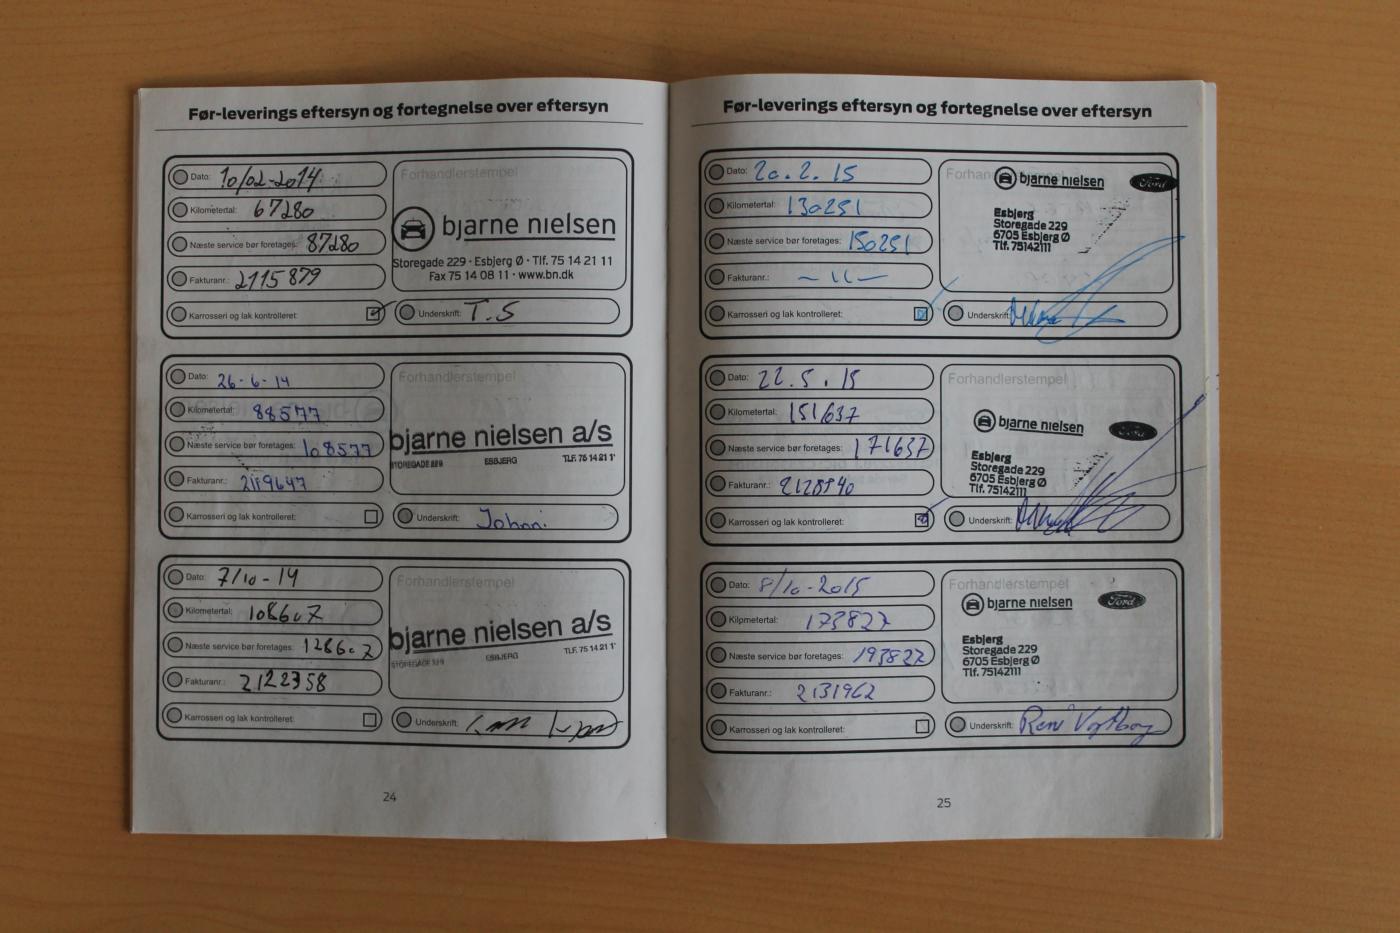 Før-leverings eftersyn og fortegnelse over eftersyn
Dato: 10/02-2014
Kilometertal: 67280
Næste service bør foretages: 87280
Fakturanr.: 2115879
Karrosseri og lak kontrolleret:
Forhandlerstempel
bjarne nielsen
Storegade 229 · Esbjerg Ø · Tlf. 75 14 21 11
Fax 75 14 08 11 · www.bn.dk
Underskrift: T.S
Dato: 26-6-14
Kilometertal: 88577
Næste service bør foretages: 108577
Fakturanr.: 2119647
Karrosseri og lak kontrolleret:
Forhandlerstempel
bjarne nielsen a/s
STOREGADE 229 ESBJERG TLF. 75 14 21 1
Underskrift: Johnni
Dato: 7/10-14
Kilometertal: 108607
Næste service bør foretages: 128607
Fakturanr.: 2122358
Karrosseri og lak kontrolleret:
Forhandlerstempel
bjarne nielsen a/s
STOREGADE 229 ESBJERG TLF. 75 14 21 1
Underskrift:
24
Før-leverings eftersyn og fortegnelse over eftersyn
Dato: 20.2.15
Kilometertal: 130251
Næste service bør foretages: 150251
Fakturanr.: -11-
Karrosseri og lak kontrolleret:
bjarne nielsen
Ford
Esbjerg
Storegade 229
6705 Esbjerg Ø
Tlf. 75142111
Underskrift:
Dato: 22.5.15
Kilometertal: 151637
Næste service bør foretages: 171637
Fakturanr.: 2128940
Karrosseri og lak kontrolleret:
Forhandlerstempel
bjarne nielsen
Ford
Esbjerg
Storegade 229
6705 Esbjerg Ø
Tlf. 75142111
Underskrift:
Dato: 8/10-2015
Kilpmetertal: 173827
Næste service bør foretages: 193827
Fakturanr.: 2131962
Karrosseri og lak kontrolleret:
Forhandlerstempel
bjarne nielsen
Ford
Esbjerg
Storegade 229
6705 Esbjerg Ø
Tlf. 75142111
Underskrift: René
25